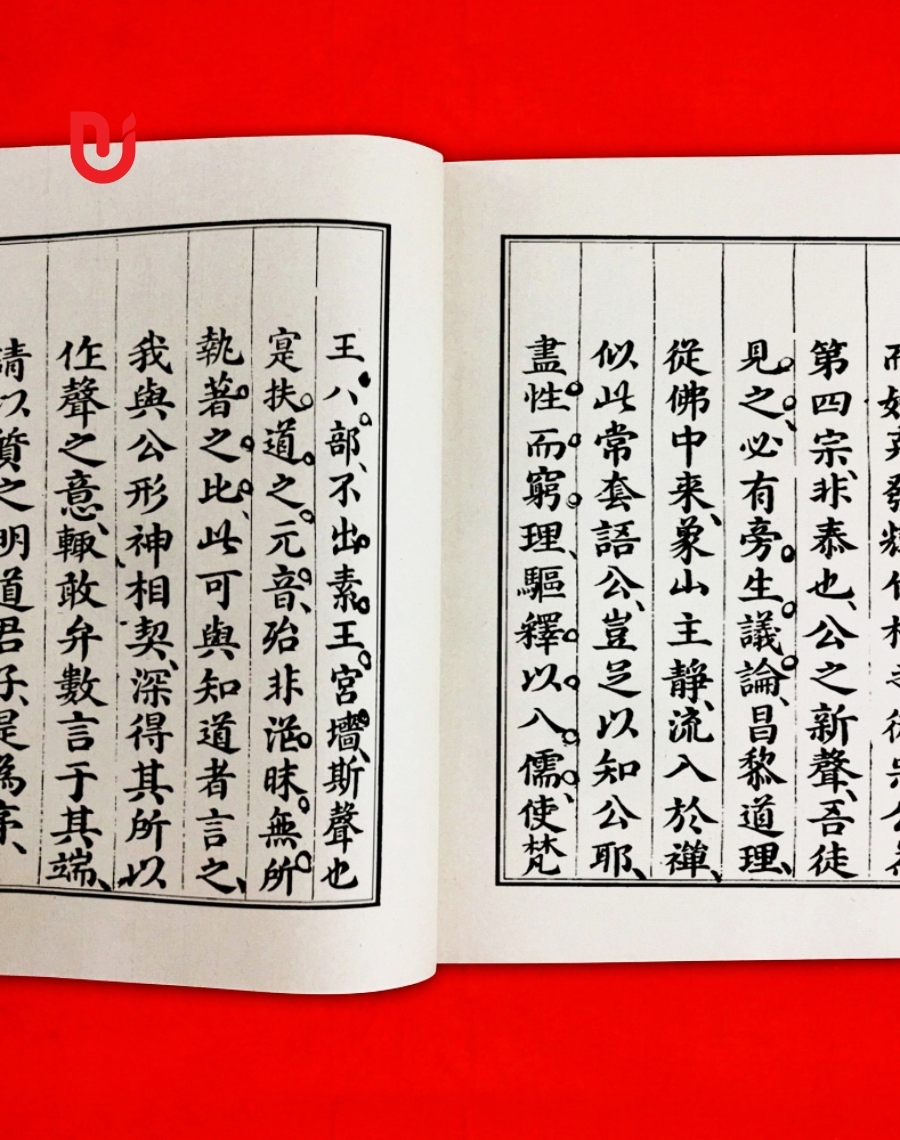 第四宗、非泰也、公之新聲、吾徒
見之、必有旁生議論、昌黎道理、
從佛中来、象山主静、流入於禪、
似此常套語公、豈足以知公耶、
盡性而窮理、驅釋以入儒、使梵
王、八部、不出素王宮墻、斯聲也
寔扶道之元音、殆非滛昧無所
執著之比、此可與知道者言之、
我與公形神相契、深得其所以
作聲之意、輙敢弁數言于其端、
請以質之明道君子、是為序、